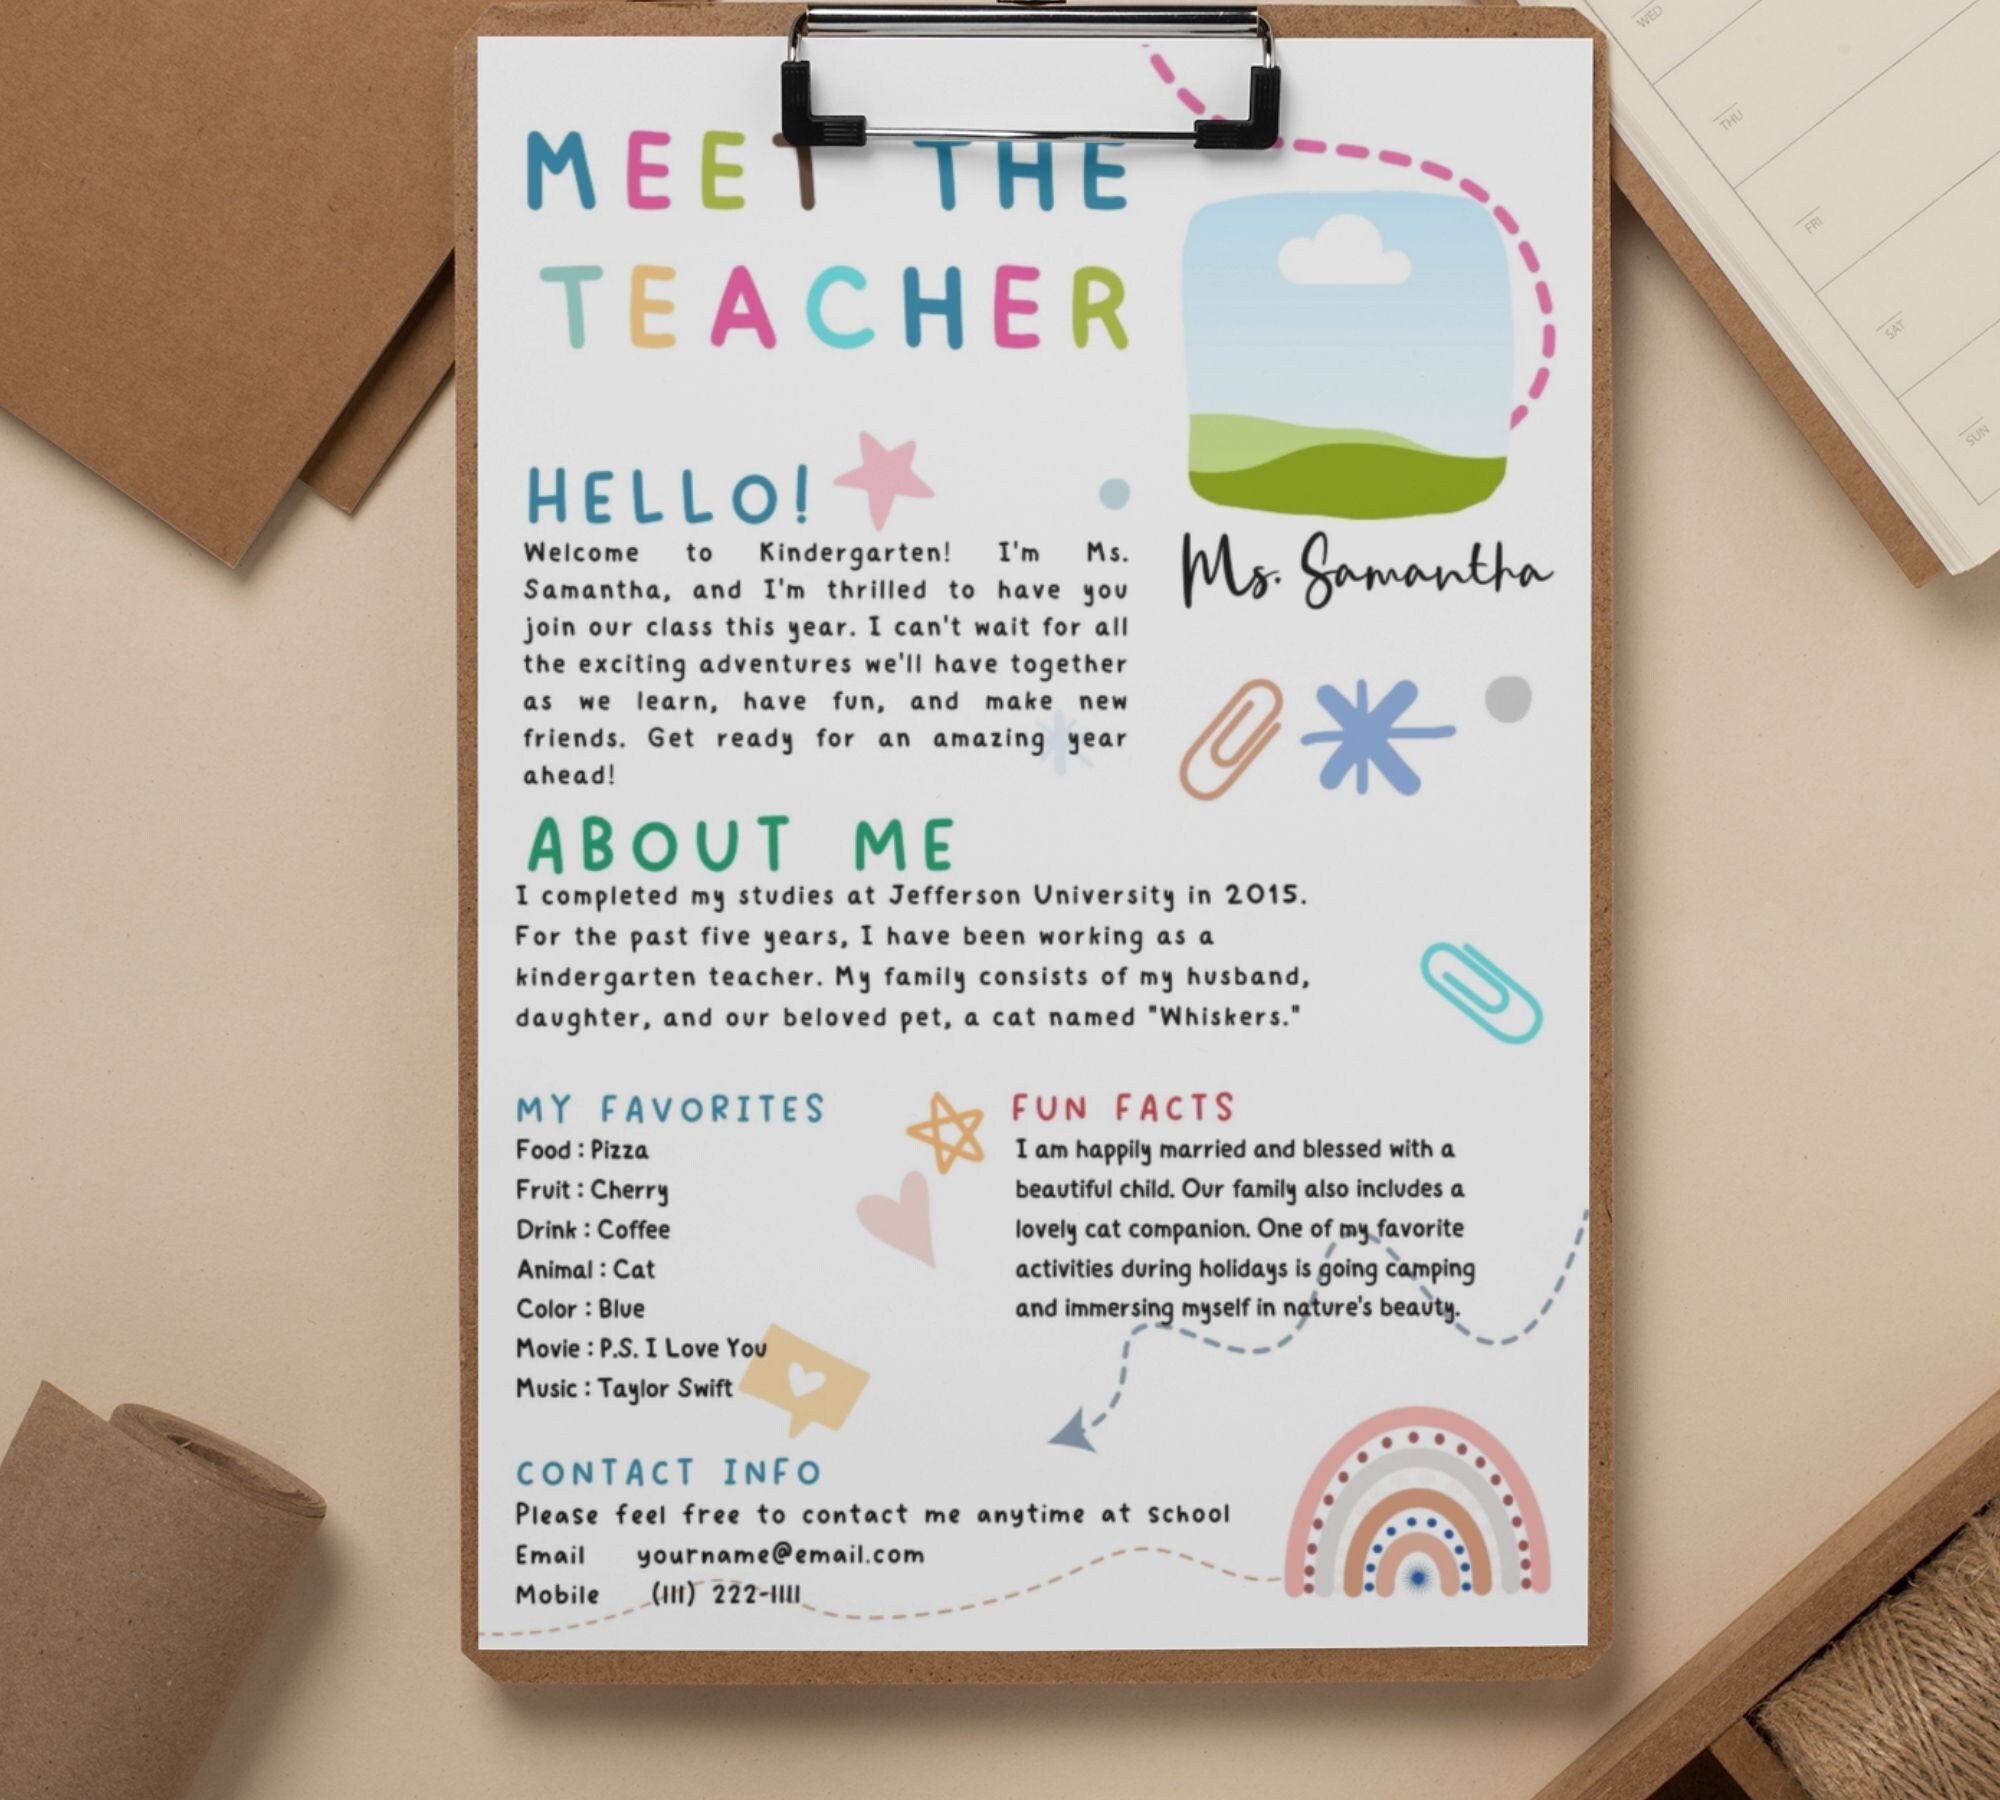 WED
THU
FRI
SAT
SUN
MEET THE
TEACHER
HELLO!
Welcome to Kindergarten! I'm Ms.
Samantha, and I'm thrilled to have you
join our class this year. I can't wait for all
the exciting adventures we'll have together
as we learn, have fun, and make new
friends. Get ready for an amazing year
ahead!
Ms. Samantha
ABOUT ME
I completed my studies at Jefferson University in 2015.
For the past five years, I have been working as a
kindergarten teacher. My family consists of my husband,
daughter, and our beloved pet, a cat named "Whiskers."
MY FAVORITES
Food : Pizza
Fruit : Cherry
Drink : Coffee
Animal : Cat
Color : Blue
Movie : P.S. I Love You
Music : Taylor Swift
FUN FACTS
I am happily married and blessed with a
beautiful child. Our family also includes a
lovely cat companion. One of my favorite
activities during holidays is going camping
and immersing myself in nature's beauty.
CONTACT INFO
Please feel free to contact me anytime at school
Email yourname@email.com
Mobile (111) 222-1111